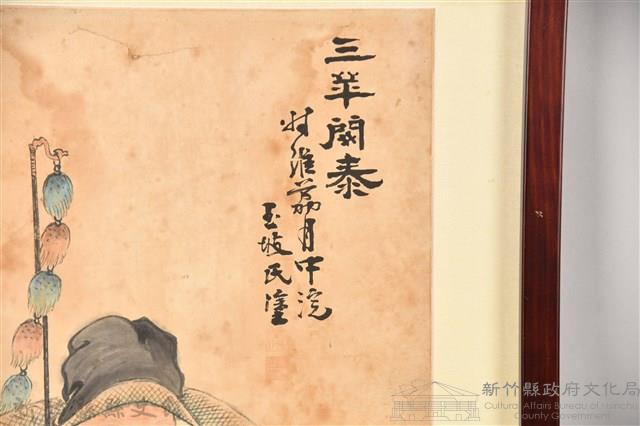 三羊開泰
時維荔月中浣
玉坡氏塗
新竹縣政府文化局
Cultural Affairs Bureau of Hsinchu
County Government